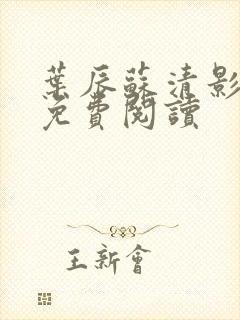 葉辰蘇清影
免費閱讀
王新會